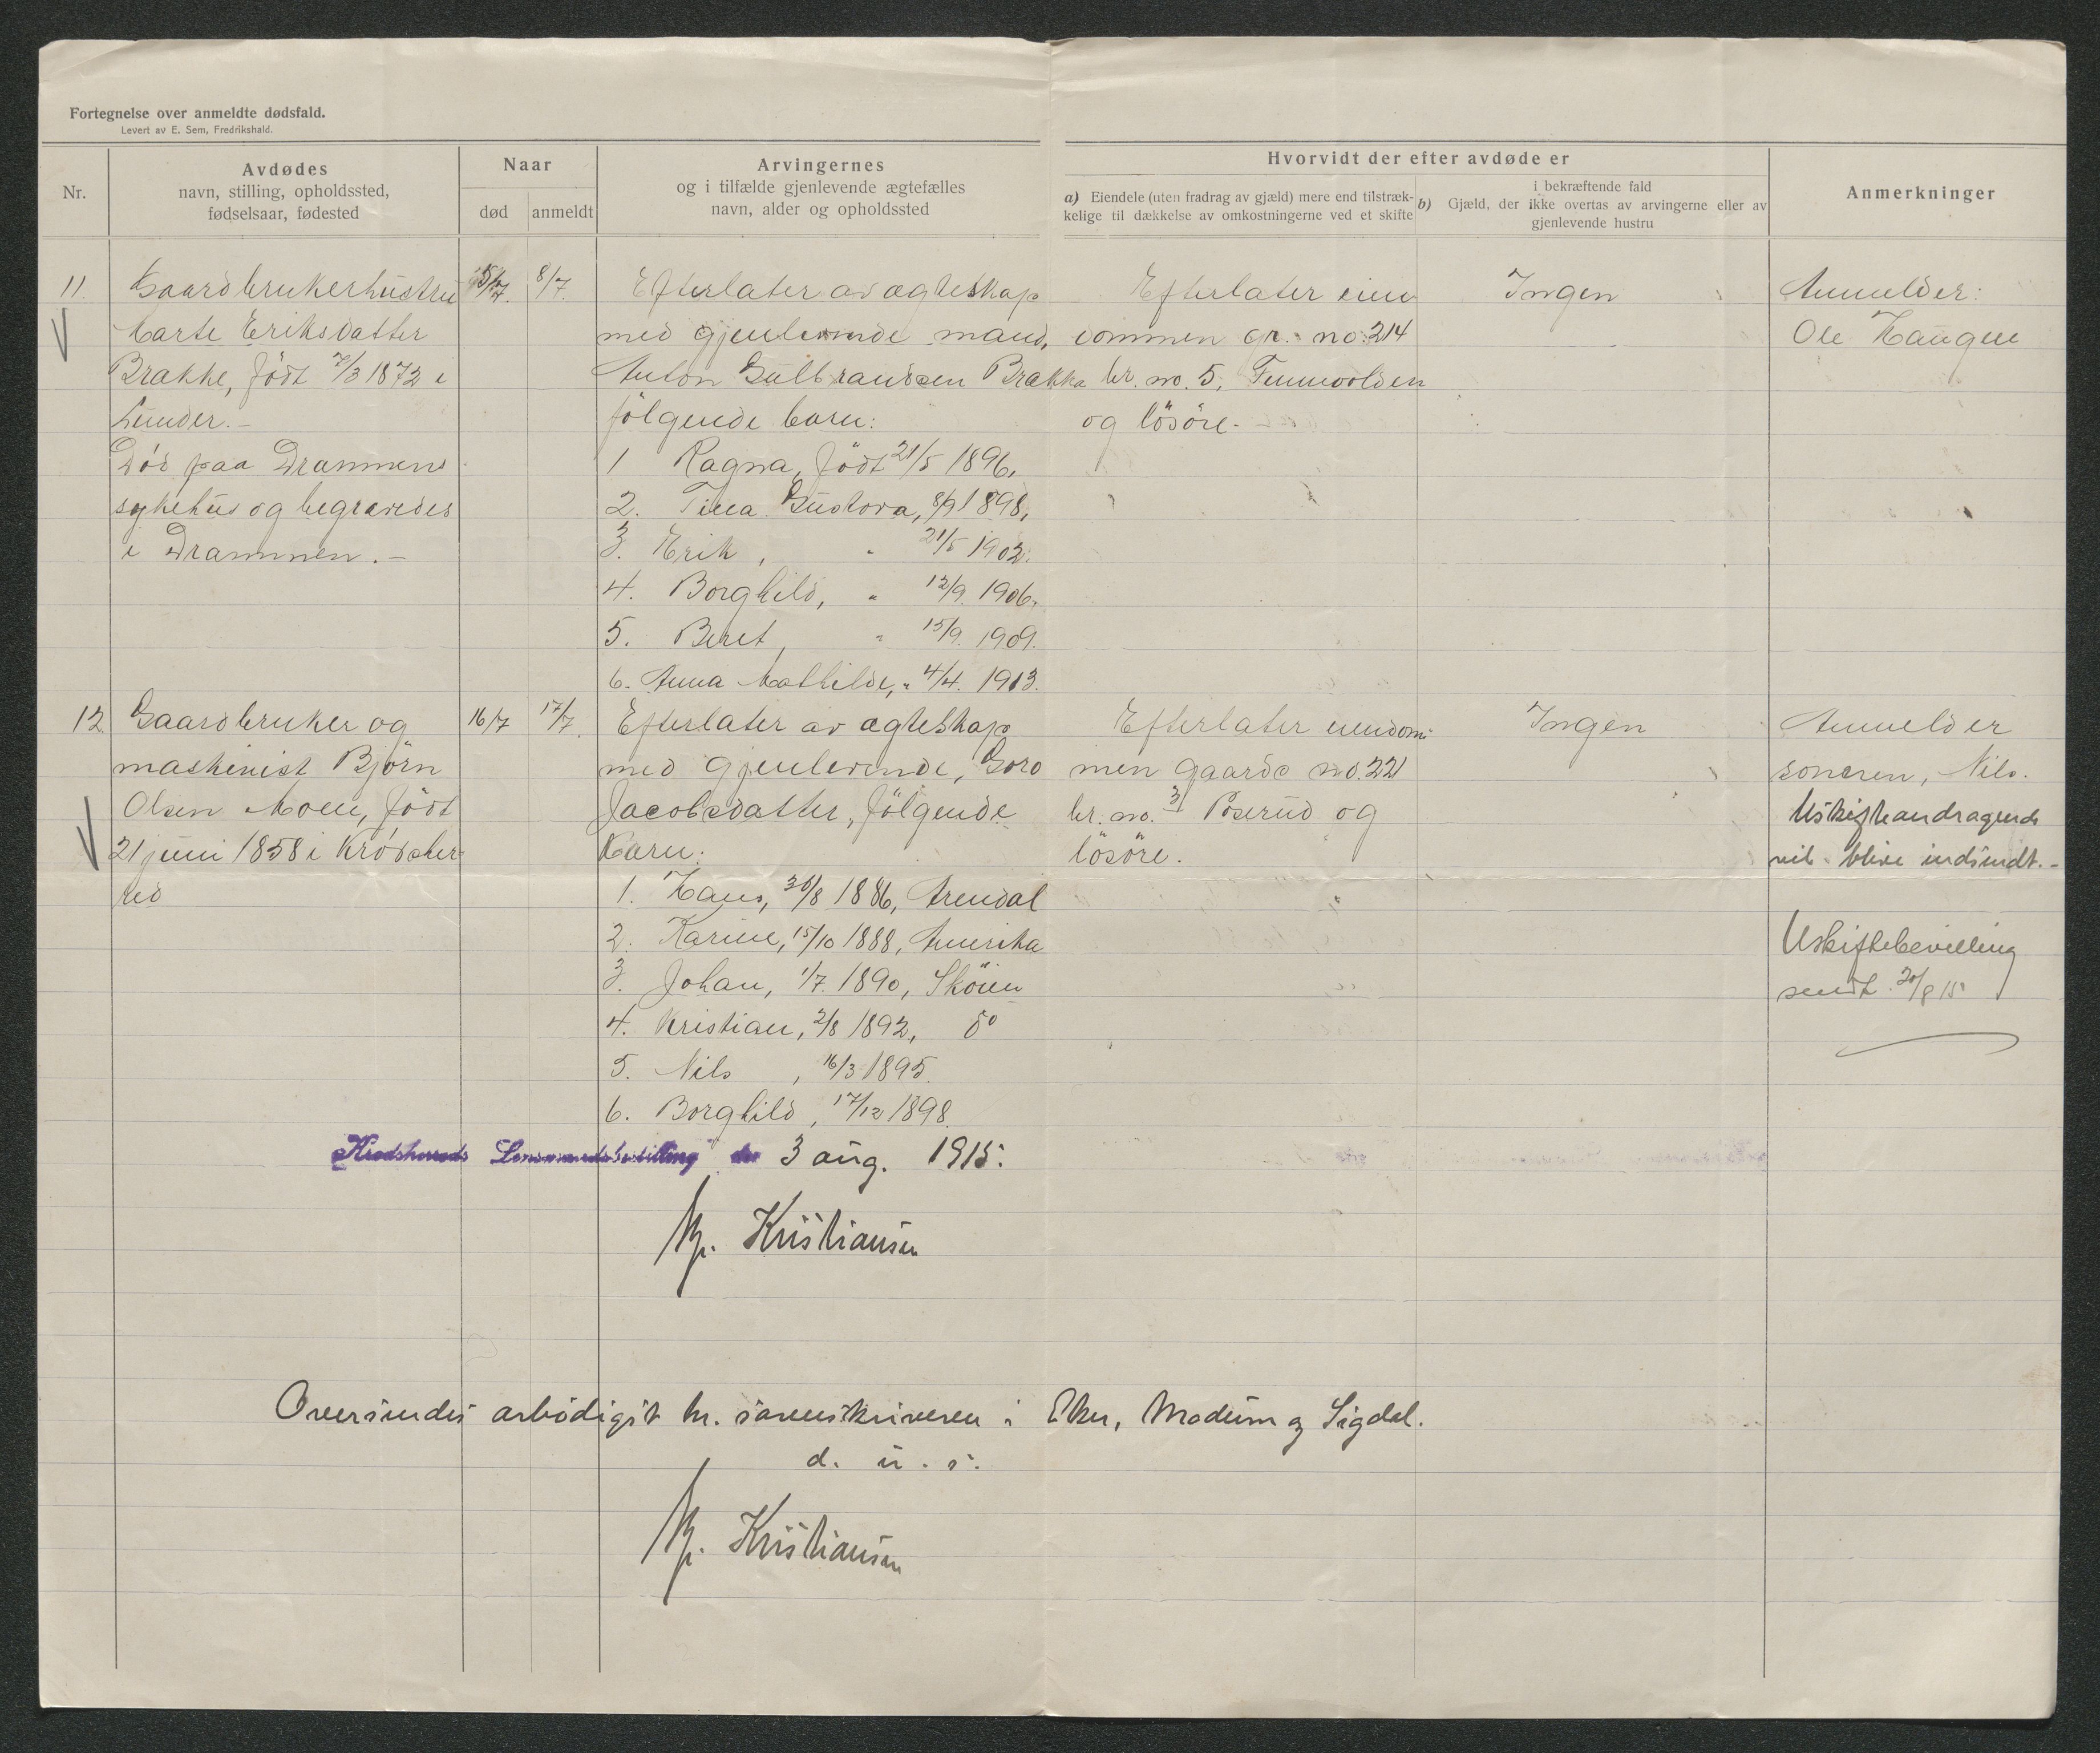 Fortegnelse over anmeldte dødsfald.
Levert av E. Sem, Fredrikshald.
Nr.
Avdødes
navn, stilling, opholdssted,
fødselsaar, fødested
Naar
død
anmeldt
Arvingernes
og i tilfælde gjenlevende ægtefælles
navn, alder og opholdssted
Hvorvidt der efter avdøde er
a) Eiendele (uten fradrag av gjæld) mere end tilstræk-
kelige til dækkelse av omkostningerne ved et skifte
i bekræftende fald
b) Gjæld, der ikke overtas av arvingerne eller av
gjenlevende hustru
Anmerkninger
11.
Gaardbrukerhustru
Marte Eriksdatter
Brakke, født 7/3 1872 i
Lunder.-
Död paa Drammens
sykehus og begravedes
i Drammen.-
5/7.
8/7.
Efterlater av ægteskap
med gjenlevende mand,
Anton Gulbrandsen Brakka
følgende barn:
1 Ragna, født 21/5 1896,
2. Tina Gustava, 8/9 1898,
3. Erik, " 21/5 1902.
4. Borghild, " 12/9. 1906.
5. Beret, " 15/9. 1909.
6. Anna Mathilde, " 4/4. 1913.
Efterlater eien
dommen gr. no. 214
br. no. 5, Finnevolden
og lösöre.
Ingen
Anmelder:
Ole Haugen
12.
Gaardbruker og
maskinist Björn
Olsen Moen, født
21 juni 1858 i Krødsher-
red
16/7
17/7.
Efterlater av ægteskap
med gjenlevende, Goro
Jacobsdatter, følgende
barn:
1. Hans, 30/8 1886, Arendal
2. Karine, 15/10 1888, Amerika
3. Johan, 1/7. 1890, Sköien
4. Kristian, 2/8 1892, do
5. Nils, 16/3 1895.
6. Borghild, 17/12 1898.
Efterlater eiendom-
men gaards no. 221
br. no. 3 Poserud og
lösöre.
Ingen
Anmelder
sönnen, Nils.
Uskifteandragende
vil blive indsendt.-
Uskiftebevilling
sendt 20/8 15
Krødsherreds Lensmandsbestilling den 3 aug. 1915.
Kr. Kristiansen
Oversendes ærbödigst hr. sorenskriveren i Eker, Modum og Sigdal.
d. u. s.
Kr. Kristiansen